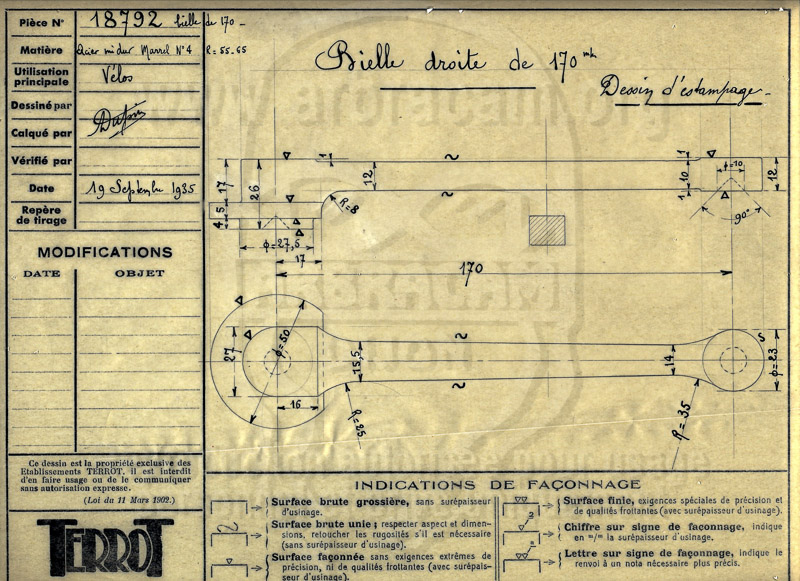 Pièce N° 18792 bielle de 170 -
Matière Acier mi dur Marrel N°4 R = 55-65
Utilisation
principale Vélos
Dessiné par
Calqué par
Vérifié par
Date 19 Septembre 1935
Repère
de tirage
MODIFICATIONS
DATE OBJET
Ce dessin est la propriété exclusive des
Etablissements TERROT. il est interdit
d'en faire usage ou de le communiquer
sans autorisation expresse.
(Loi du 11 Mars 1902.)
TERROT
Bielle droite de 170 m/m
Dessin d'estampage -
17
26
5
4
1
12
R=8
1
10
1
ϕ=10
12
90°
ϕ=27,5
17
170
27
ϕ=50
15,5
14
S
ϕ=23
16
R=25
R=35
INDICATIONS DE FAÇONNAGE
Surface brute grossière, sans surépaisseur
d'usinage.
Surface brute unie ; respecter aspect et dimen-
sions, retoucher les rugosités s'il est nécessaire
(sans surépaisseur d'usinage).
Surface façonnée sans exigences extrêmes de
précision, ni de qualités frottantes (avec surépais-
seur d'usinage).
Surface finie, exigences spéciales de précision et
de qualités frottantes (avec surépaisseur d'usinage).
Chiffre sur signe de façonnage, indique
en m/m la surépaisseur d'usinage.
Lettre sur signe de façonnage, indique le
renvoi à un nota nécessaire plus précis.